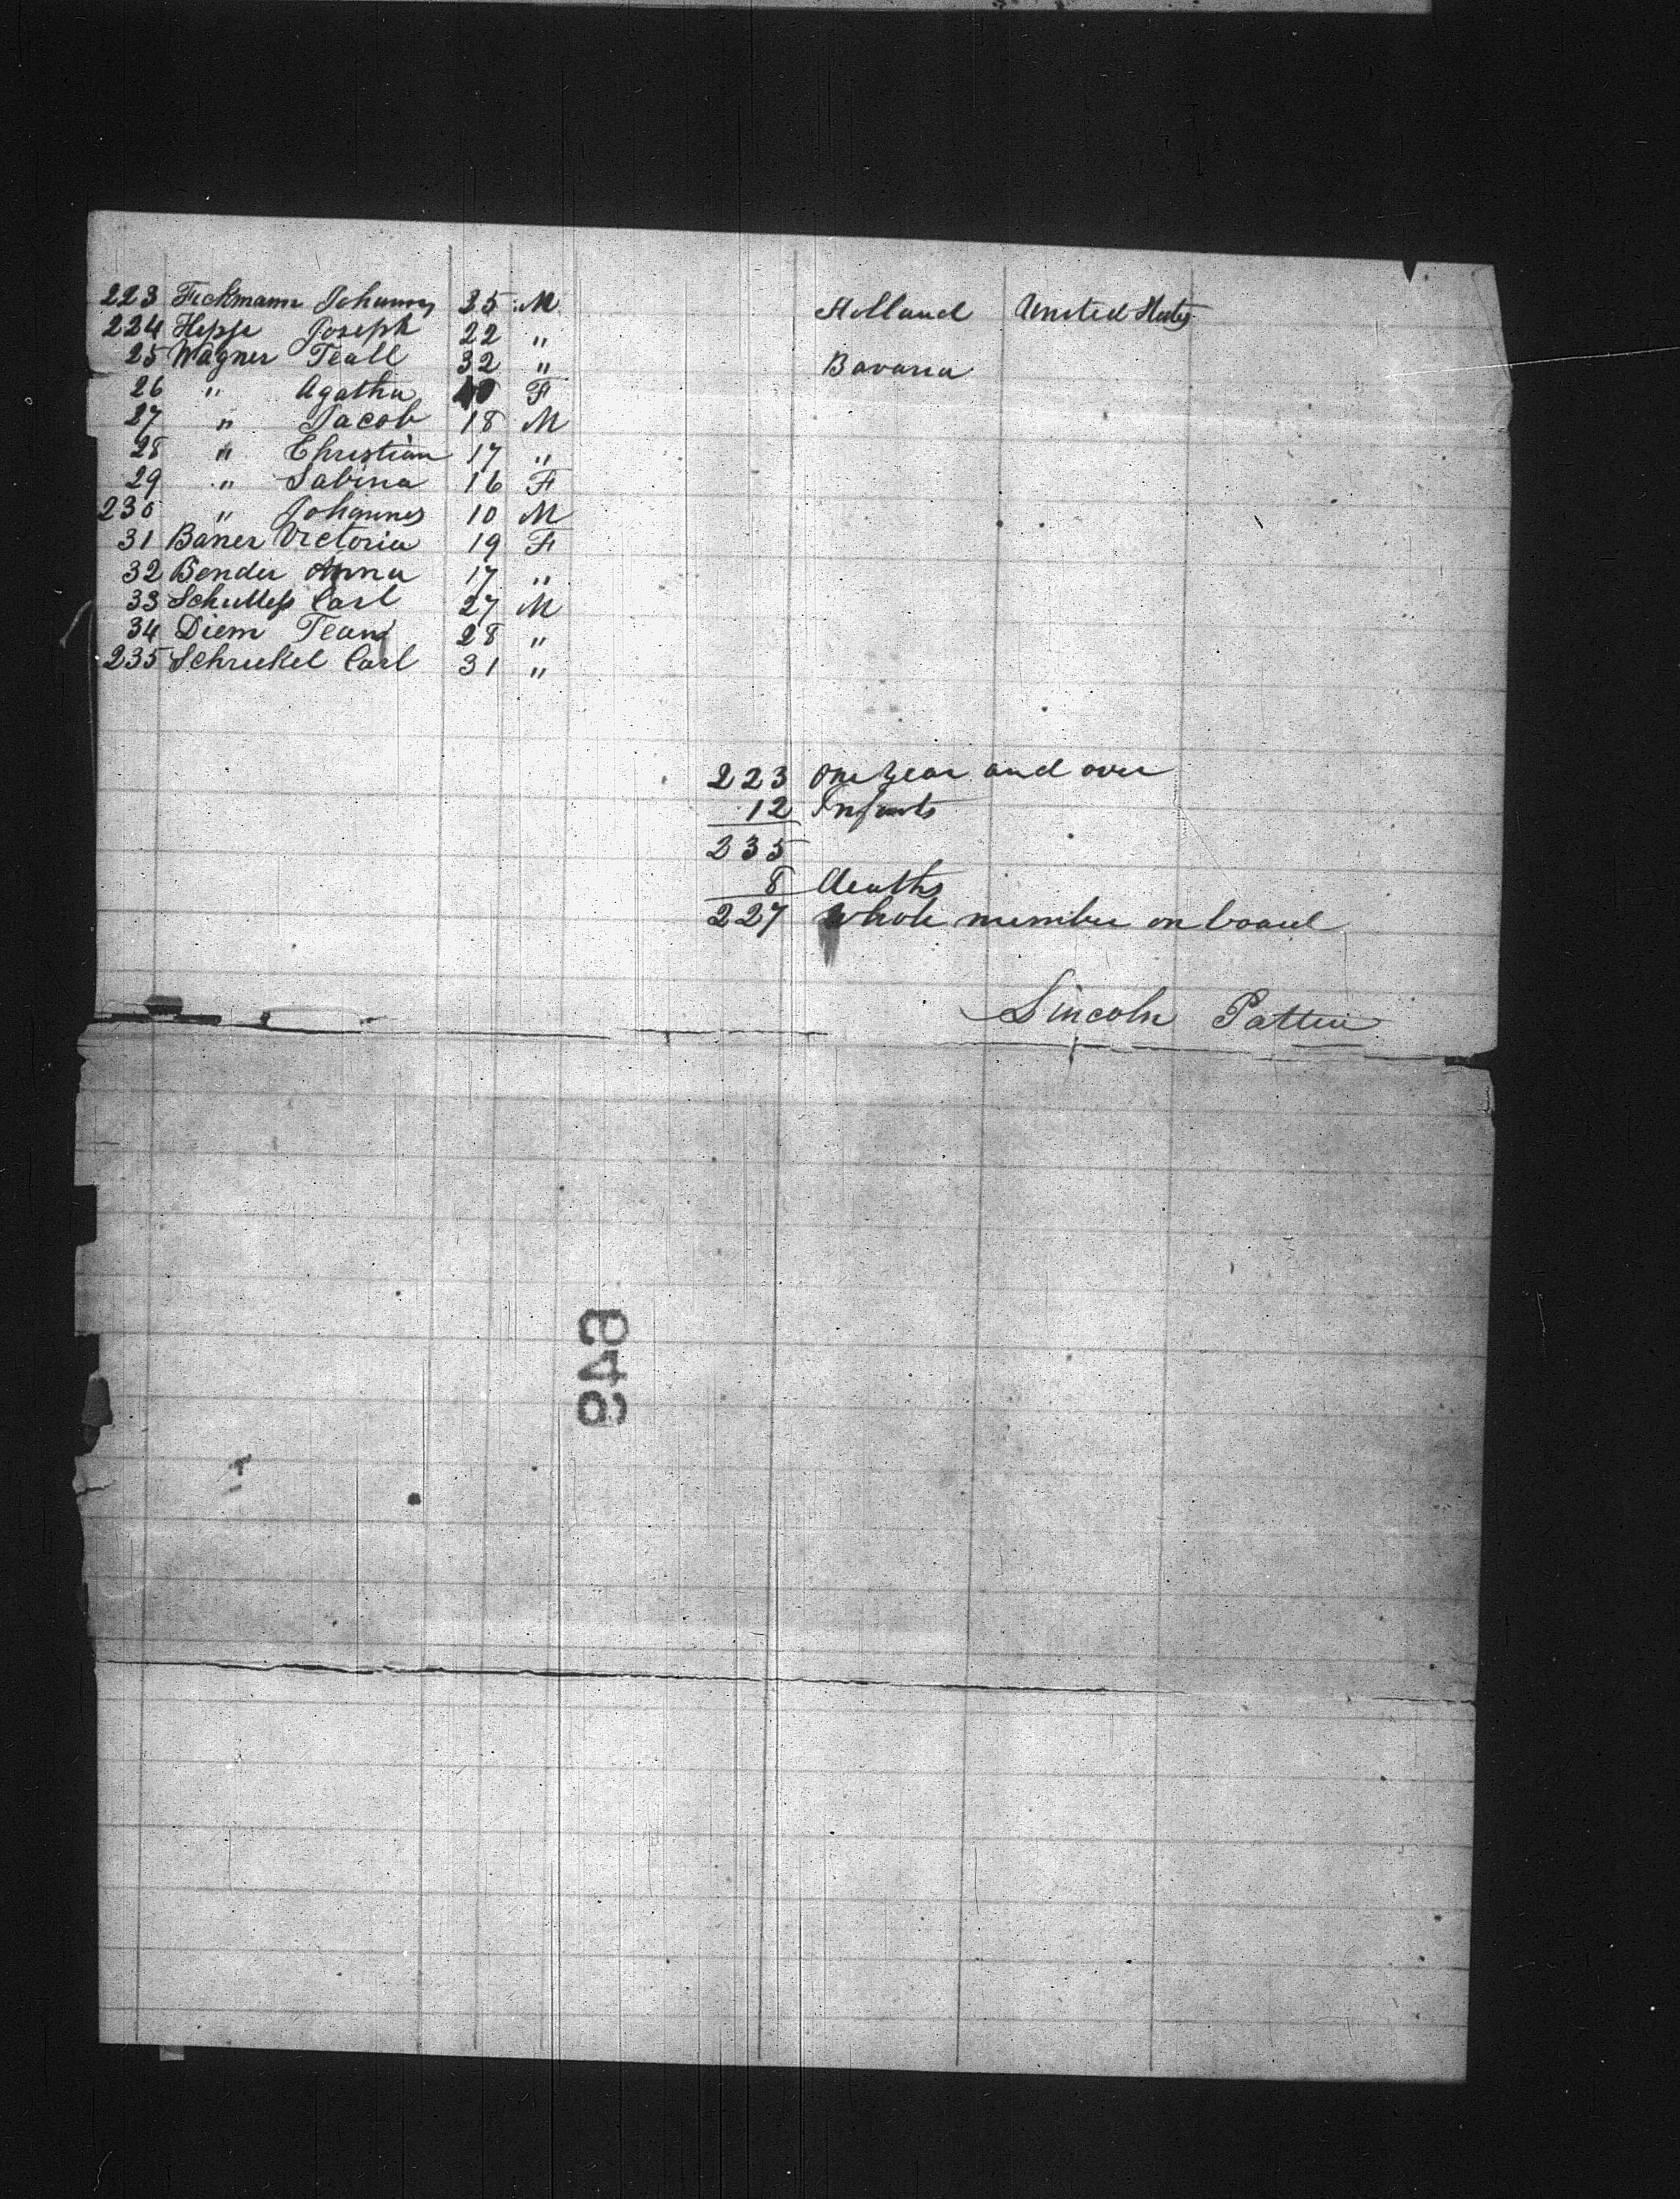 223 Feckmann Johannes 25 M Holland United States
224 Heppe Joseph 22 "
25 Wagner Teall 32 " Bavaria
26 " Agatha F
27 " Jacob 18 M
28 " Christian 17 "
29 " Sabina 16 F
230 " Johannes 10 M
31 Baner Victoria 19 F
32 Bender Anna 17 "
33 Schultess Carl 27 M
34 Diem 28 "
235 Schreckel Carl 31 "
223 One Year and over
12 Infants
235
8 deaths
227 Whole number on board
Lincoln Patten